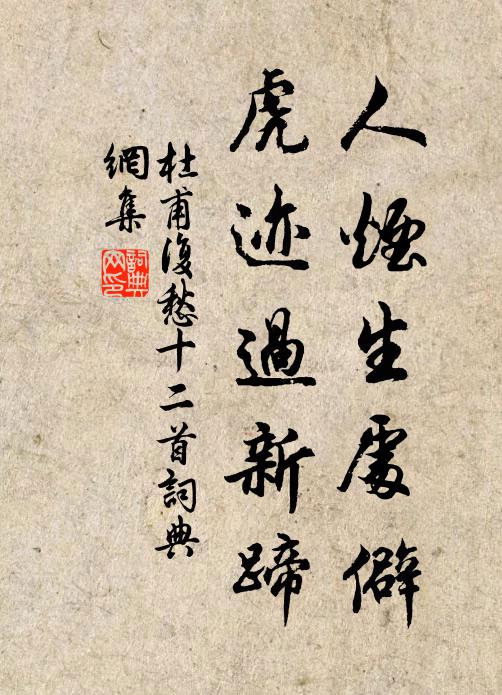 人煙生處僻
虎迹過新蹄
杜甫復愁十二首詞典
網集
詞典
网印